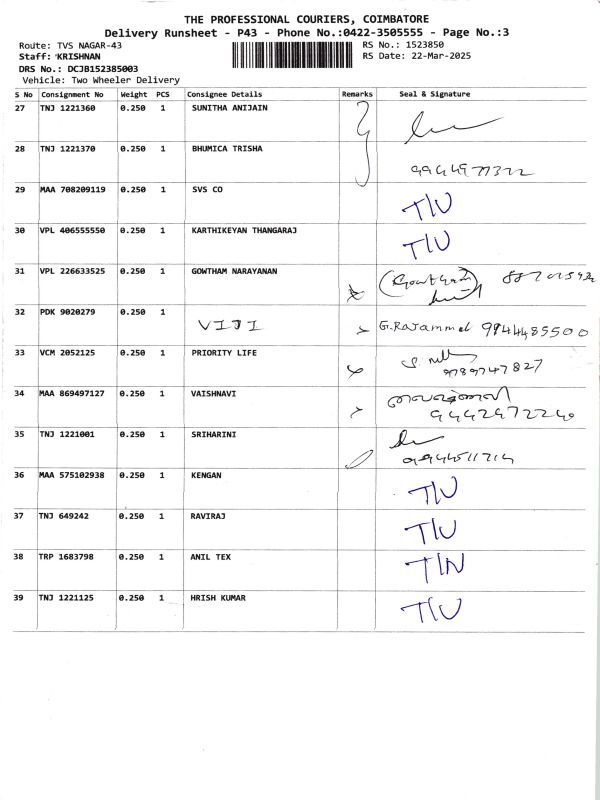 THE PROFESSIONAL COURIERS, COIMBATORE
Delivery Runsheet - P43 - Phone No.:0422-3505555 - Page No.:3
Route: TVS NAGAR-43
RS No.: 1523850
Staff: KRISHNAN
RS Date: 22-Mar-2025
DRS No.: DCJB152385003
Vehicle: Two Wheeler Delivery
S No Consignment No Weight PCS Consignee Details Remarks Seal & Signature
27 TNJ 1221360 0.250 1 SUNITHA ANIJAIN
28 TNJ 1221370 0.250 1 BHUMICA TRISHA
29 MAA 708209119 0.250 1 SVS CO T/U
30 VPL 406555550 0.250 1 KARTHIKEYAN THANGARAJ T/U
31 VPL 226633525 0.250 1 GOWTHAM NARAYANAN Gowtham
32 PDK 9020279 0.250 1 VIJI G.Rajammal 9944485500
33 VCM 2052125 0.250 1 PRIORITY LIFE 9789747827
34 MAA 869497127 0.250 1 VAISHNAVI 9442472240
35 TNJ 1221001 0.250 1 SRIHARINI 9944511714
36 MAA 575102938 0.250 1 KENGAN T/U
37 TNJ 649242 0.250 1 RAVIRAJ T/U
38 TRP 1683798 0.250 1 ANIL TEX T/N
39 TNJ 1221125 0.250 1 HRISH KUMAR T/U